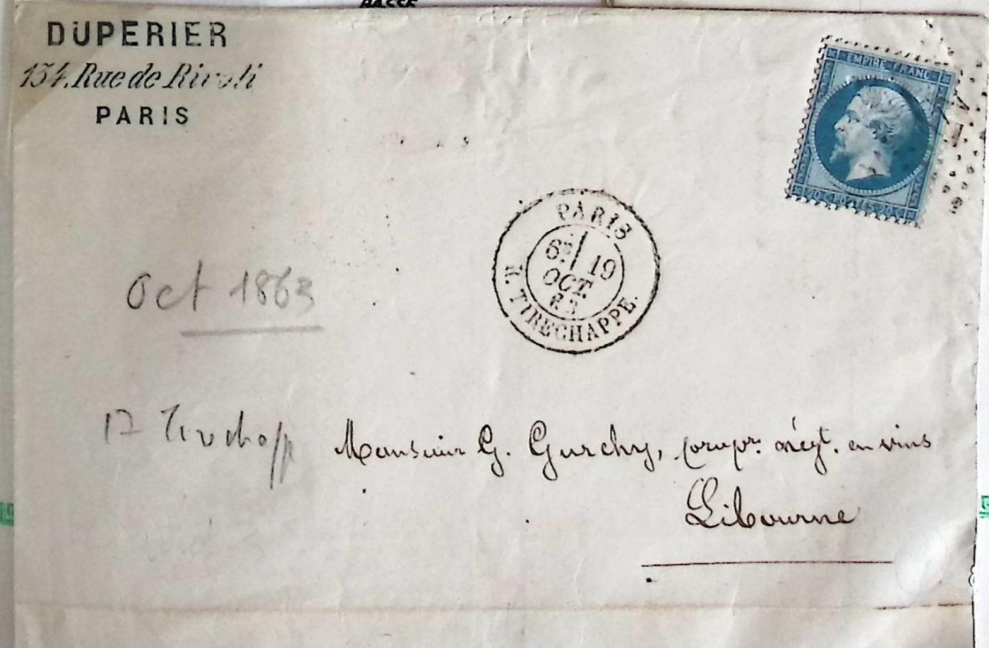 DUPERIER
154, Rue de Rivoli
PARIS
EMPIRE FRANC
20 C POSTES 20 C
PARIS
6E 19
OCT.
63
R. TIRECHAPPE.
Oct 1863
17 Tirechapp
Monsieur G. Gurchy, propr. négt. en vins
Libourne